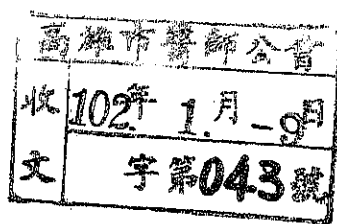 高雄市醫師公會
收文
102年 1.月-9日
字第043號